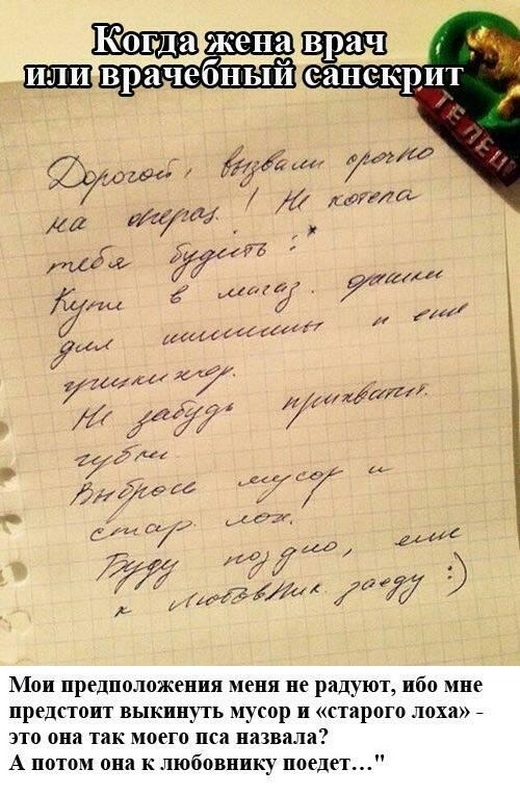 Когда жена врач
или врачебный санскрит
ТЕЛЕЦ
Дорогой, вызвали срочно
на операц.! Не хотела
тебя будить :*
Купи в магаз.
для и еще
Не забудь прихватит.
губки
Выброси мусор и
стар. лох.
Буду поздно, или
к любовник заеду :)
Мои предположения меня не радуют, ибо мне
предстоит выкинуть мусор и «старого лоха» -
это она так моего пса назвала?
А потом она к любовнику поедет…"